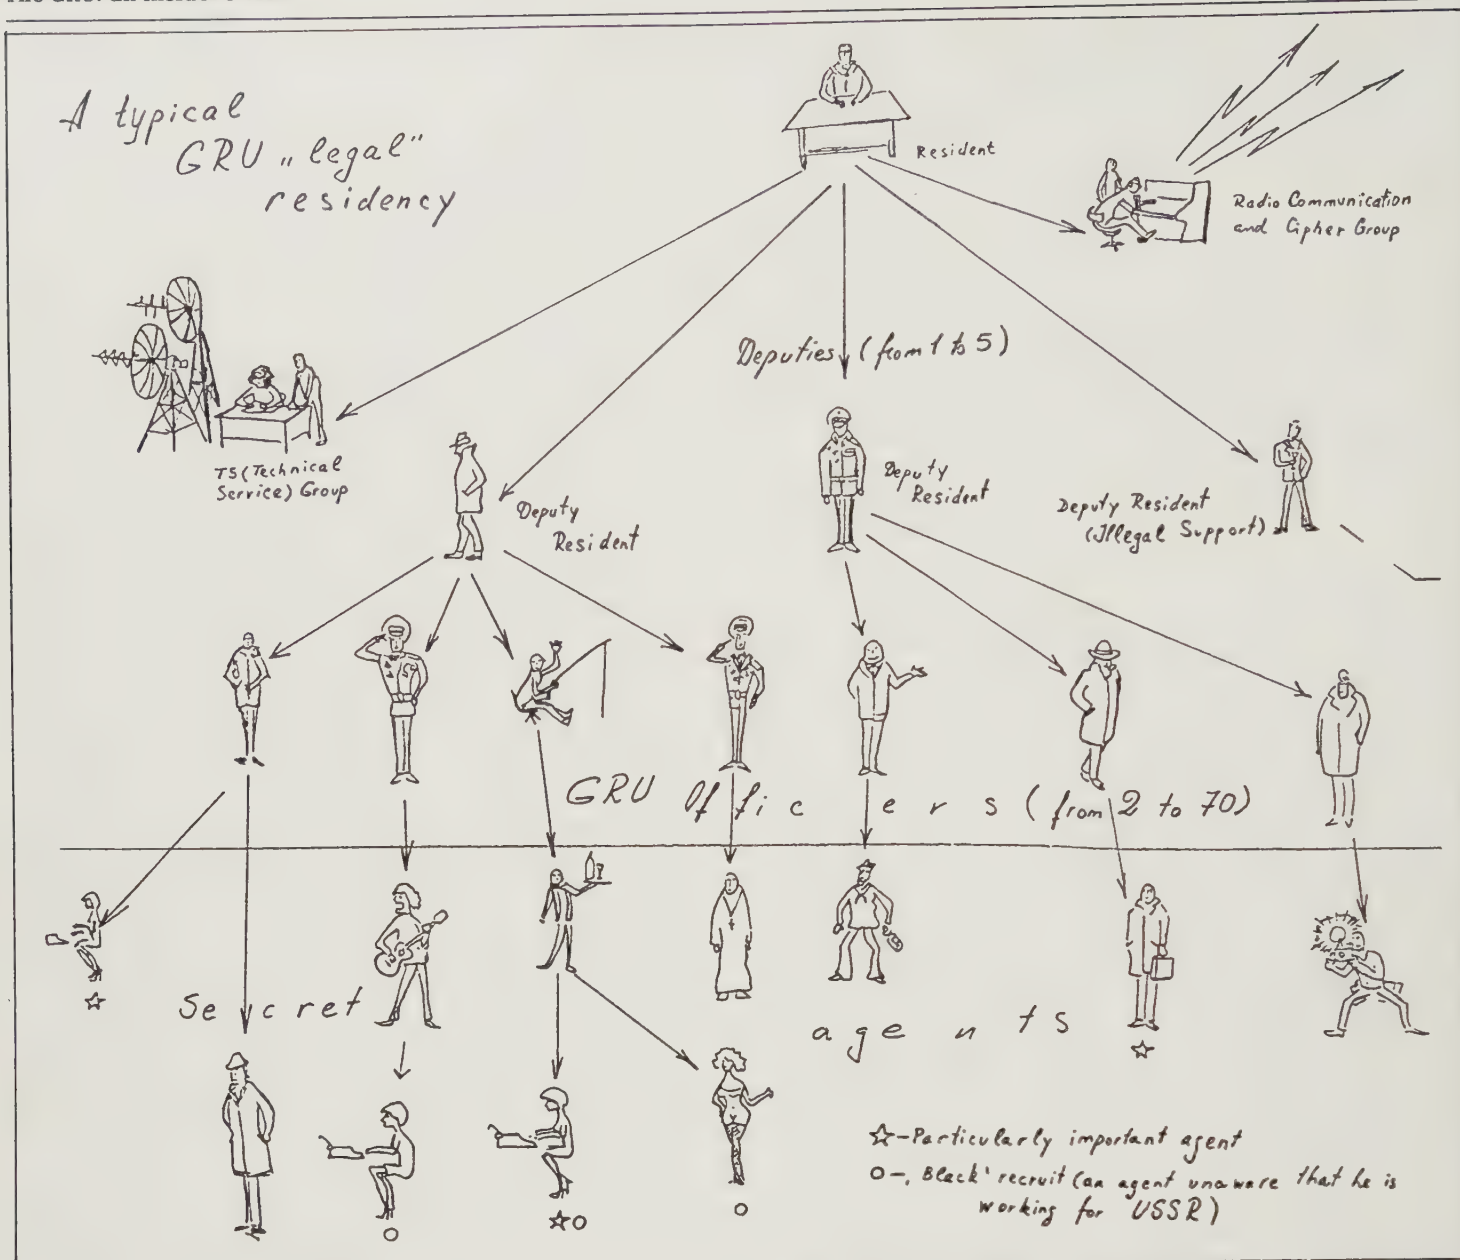 A typical
GRU „legal"
residency
Resident
Radio Communication
and Cipher Group
Deputies (from 1 to 5)
TS (Technical
Service) Group
Deputy
Resident
Deputy
Resident
Deputy Resident
(Illegal Support)
GRU Officers (from 2 to 70)
Secret agents
☆-Particularly important agent
o-, Black' recruit (an agent unaware that he is
working for USSR)